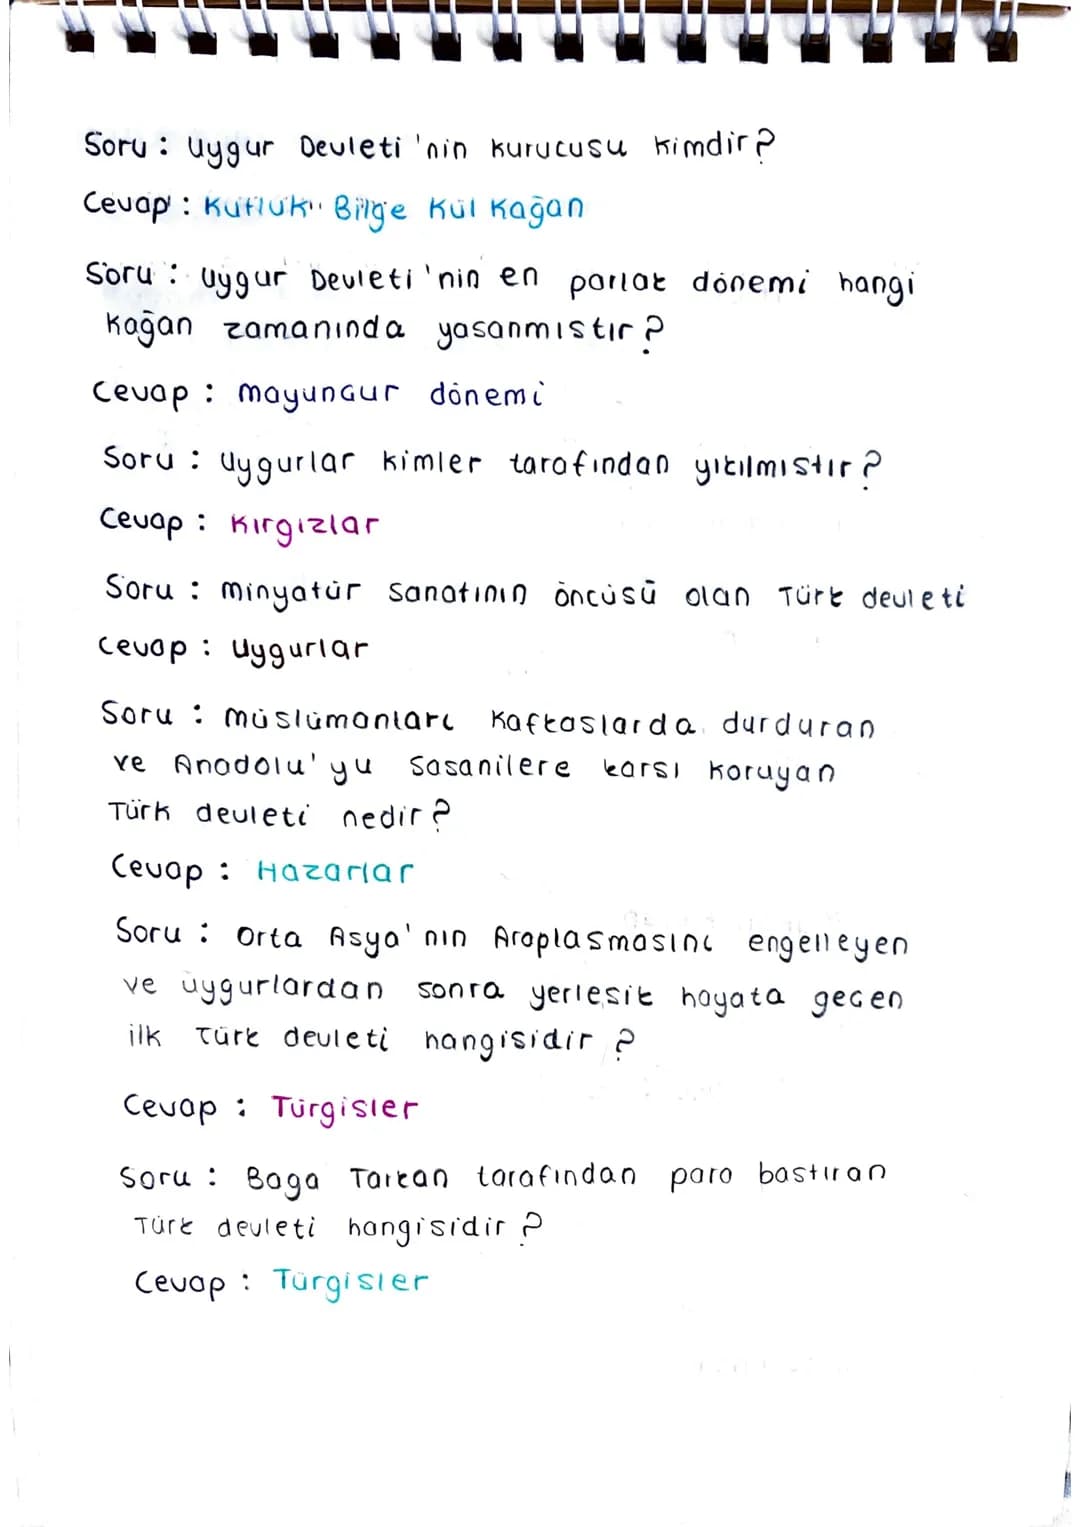 Soru : Uygur Devleti'nin kurucusu kimdir?
Cevap : Kutluk Bilge Kül Kağan
Soru : Uygur Devleti'nin en parlak dönemi hangi
kağan zamanında yasanmıstır?
Cevap : mayuncur dönemi
Soru : Uygurlar kimler tarafından yıkılmıstır?
Cevap : Kırgızlar
Soru : minyatür sanatının öncüsü olan Türk devleti
Cevap : Uygurlar
Soru : müslümanları Kafkaslarda durduran
ve Anadolu'yu Sasanilere karsı koruyan
Türk devleti nedir?
Cevap : Hazarlar
Soru : Orta Asya'nın Araplasmasını engelleyen
ve uygurlardan sonra yerlesik hayata gecen
ilk Türk devleti hangisidir ?
Cevap : Türgisler
Soru : Baga Tarkan tarafından para bastıran
Türk devleti hangisidir ?
Cevap : Türgisler